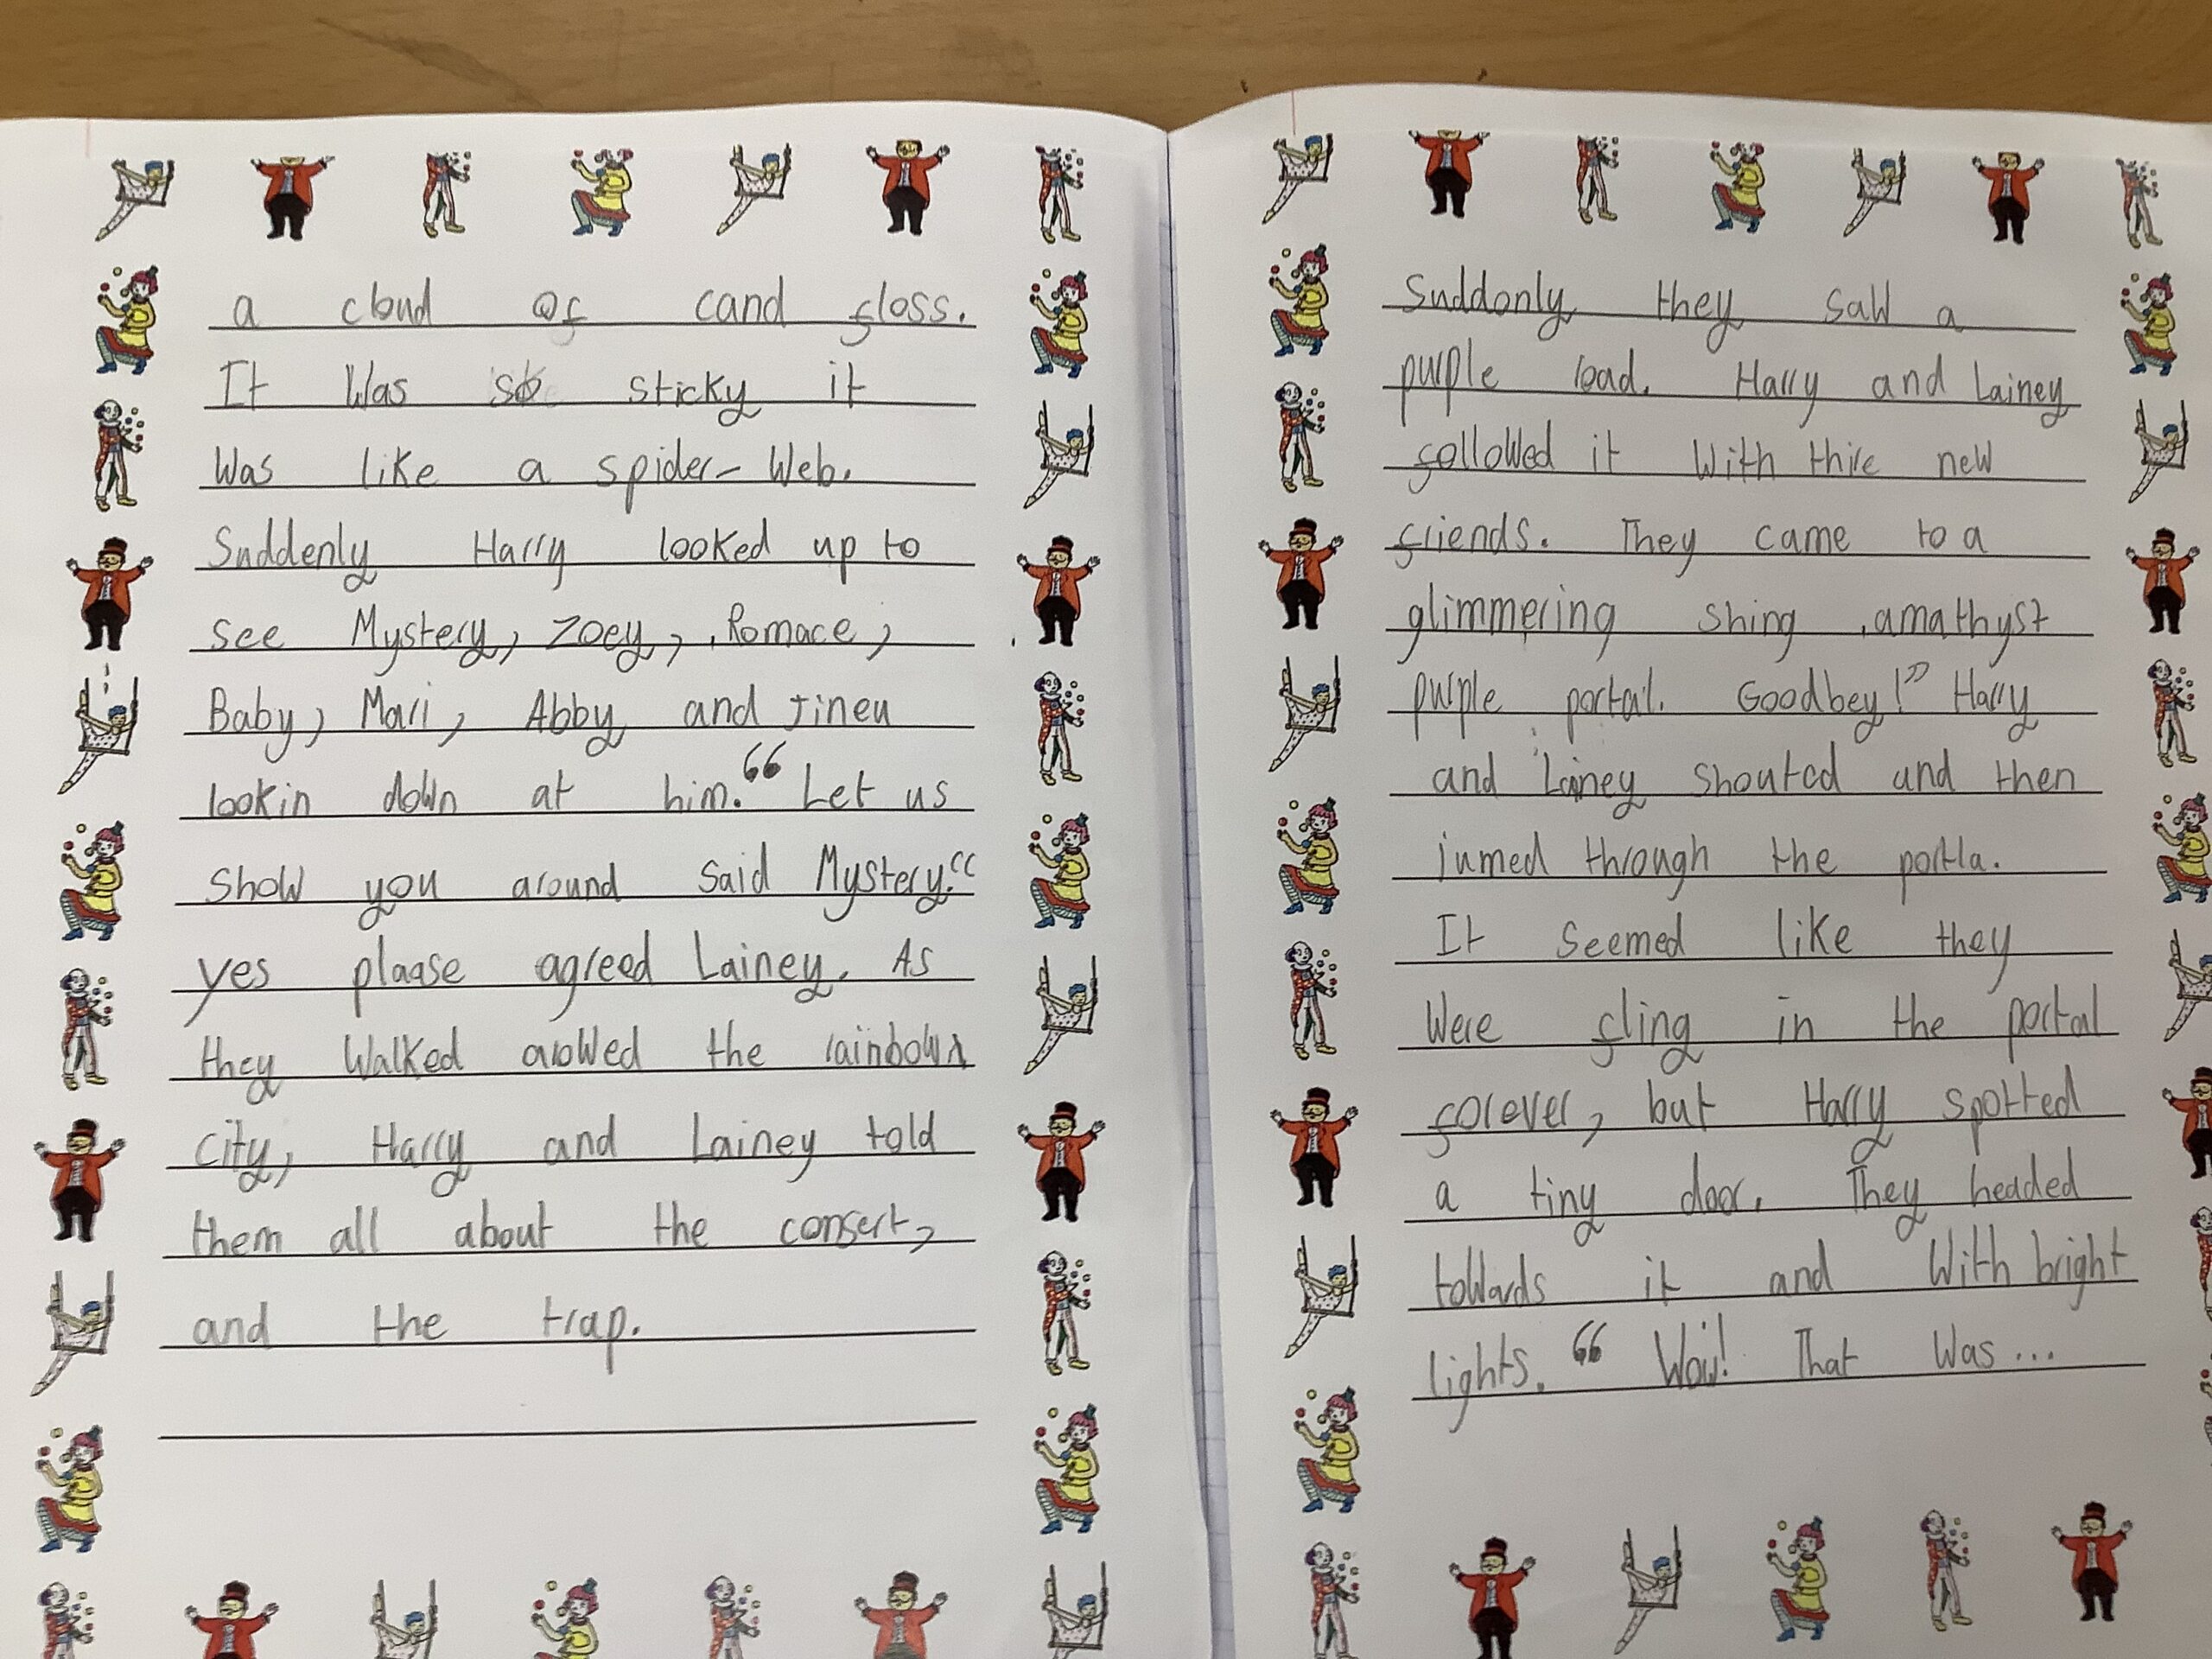 a cloud of cand floss.
It was so sticky it
was like a spider-web.
Suddenly Harry looked up to
see Mystery, Zoey, Romace,
Baby, Mari, Abby and Jineu
lookin down at him. “ Let us
show you around said Mystery.“
yes plaase agreed Lainey. As
they walked arowed the rainbown
city, Harry and Lainey told
them all about the consert,
and the trap.
Suddonly they saw a
purple road. Harry and Lainey
followed it with thire new
friends. They came to a
glimmering shing, amathyst
purple portal. Goodbey!” Harry
and Lainey shouted and then
jumed through the portla.
It seemed like they
were fling in the portal
forever, but Harry spotted
a tiny door. They headed
towards it and with bright
lights. “ Wow! That was...